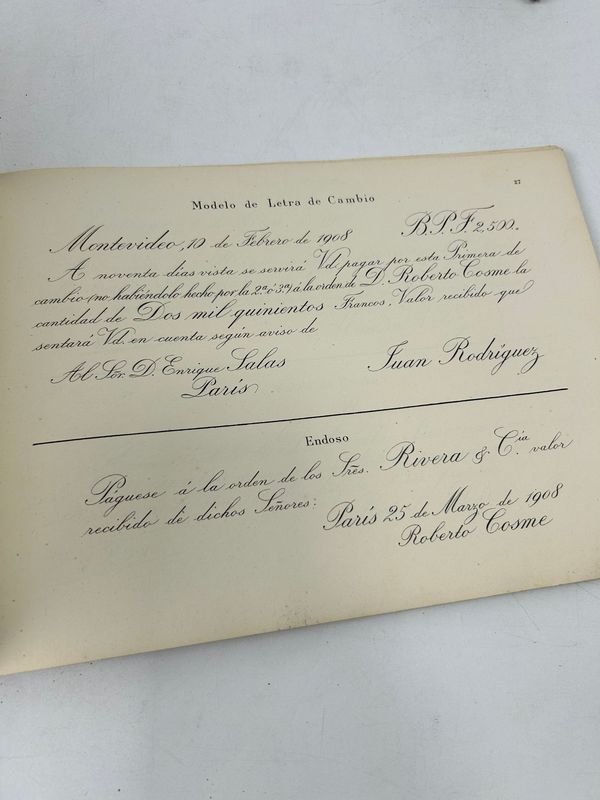 27
Modelo de Letra de Cambio
Montevideo, 10 de Febrero de 1908 B.P.F. 2,500.
A noventa dias vista se servirá Vd. pagar por esta Primera de
cambio (no habiéndolo hecho por la 2.ª ó 3.ª) á la orden de D. Roberto Cosme la
cantidad de Dos mil quinientos Francos, Valor recibido que
sentará Vd. en cuenta según aviso de
Al Sor. D. Enrique Salas Juan Rodríguez
París
Endoso
Páguese á la orden de los Sres. Rivera & C.ia valor
recibido de dichos Señores:
París 25 de Marzo de 1908
Roberto Cosme